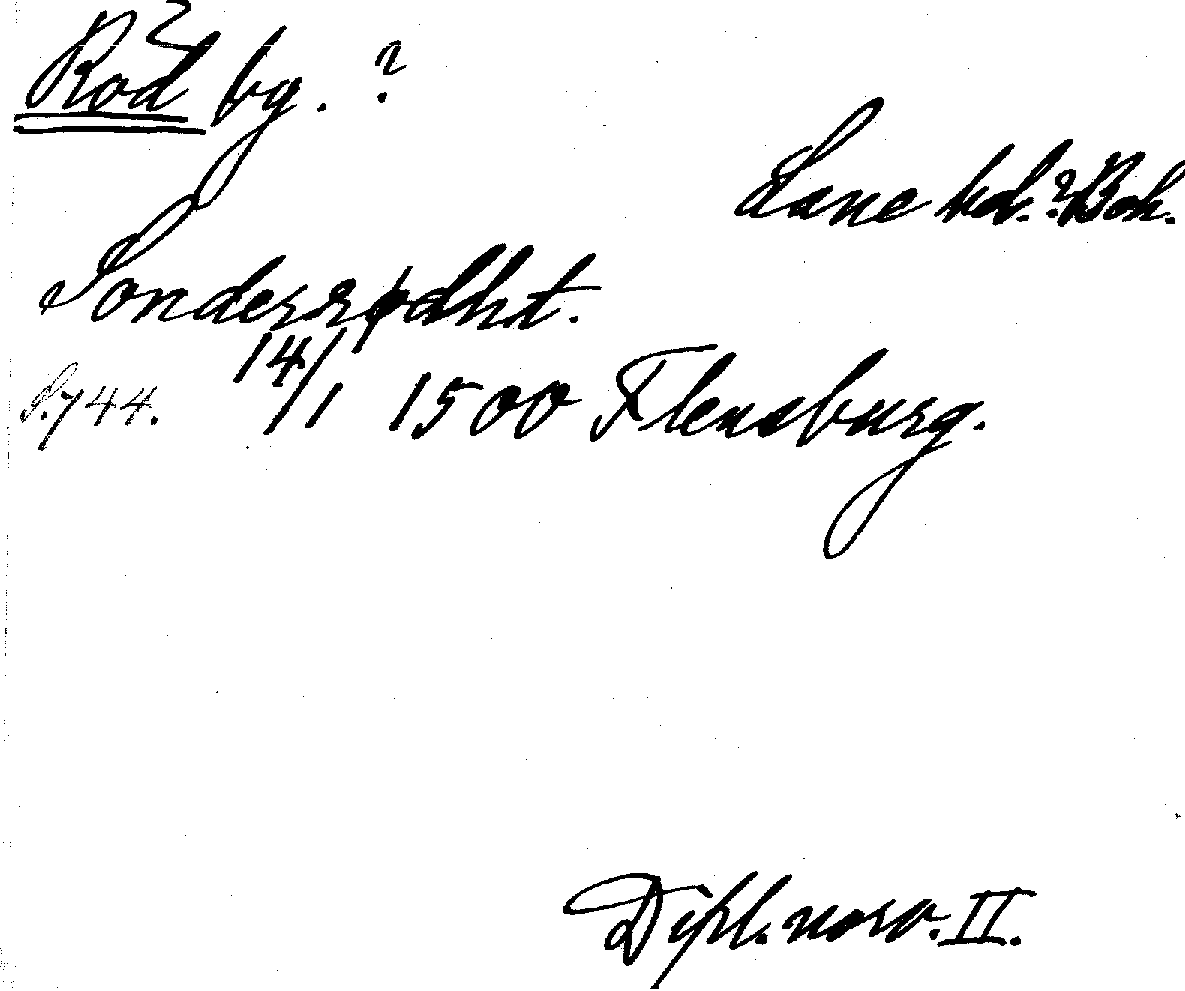 Rod bg. ?
Lane hd.? Boh.
Sønderrødht.
S. 744. 14/1 1500 Flensburg.
Dipl. norv. II.